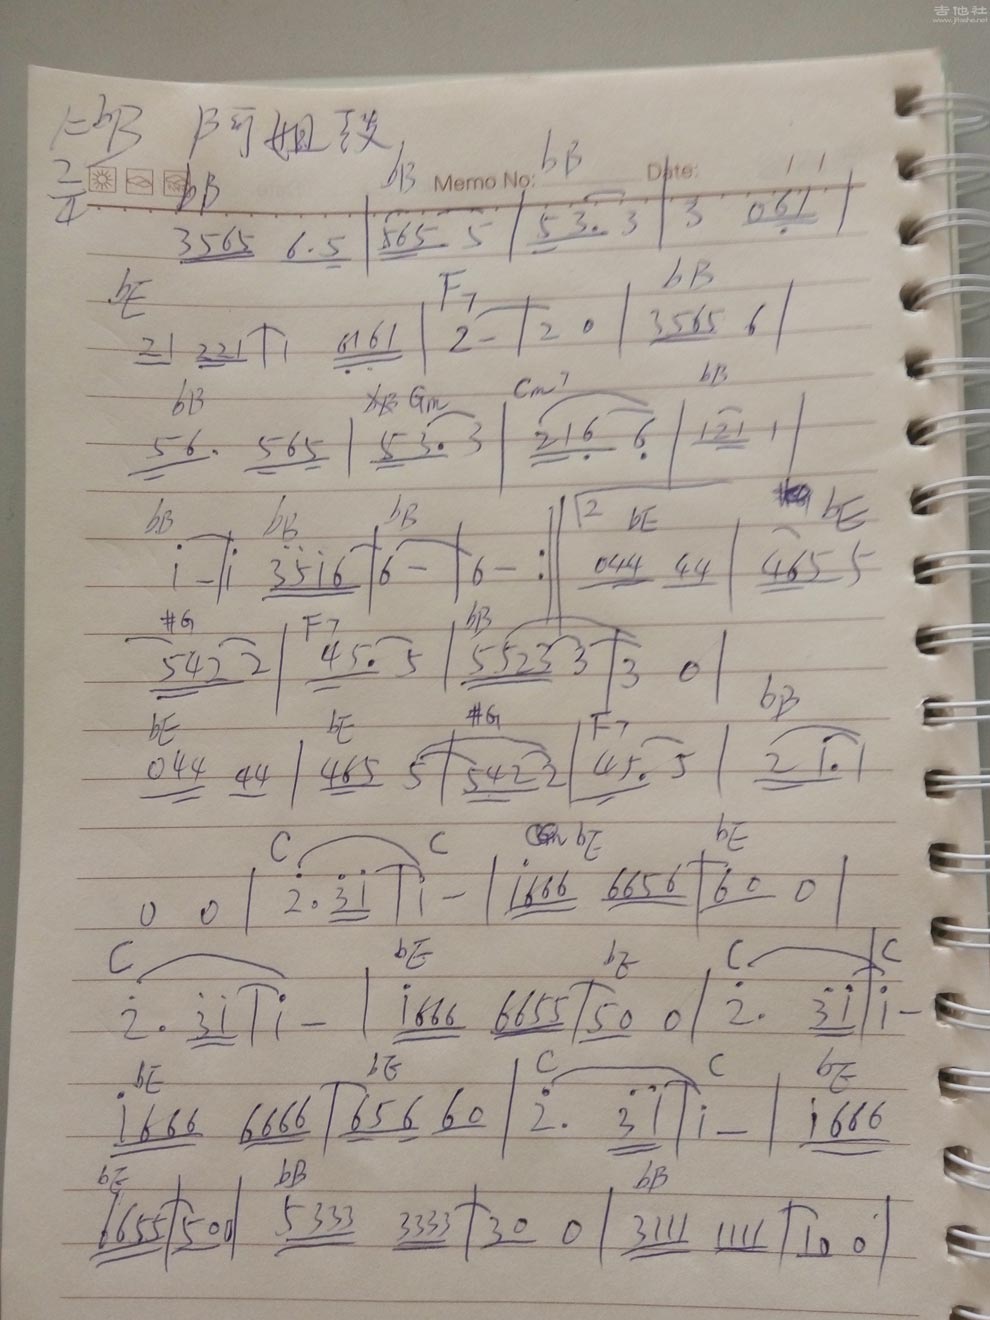 吉他社
www.jitashe.net
1=bB 阿姐鼓
2/4
Memo No: Date:
bB bB bB
3565 6·5 | 565· 5 | 53· 3 | 3 061 |
bE F7 bB
21 221 | 1 6161 | 2 - | 2 0 | 3565 6 |
bB Gm Cm7 bB
56· 565 | 53· 3 | 216 6 | 121 1 |
bB bB bB 2 bE bE
i - | i 3516 | 6 - | 6 - :‖ 044 44 | 465 5
#G F7 bB
5422 2 | 45· 5 | 5523 3 | 3 0 |
bE bE #G F7 bB
044 44 | 465 5 | 5422 2 | 45· 5 | 2 1· 1
C C bE bE
0 0 | 2· 31 | i - | i666 6656 | 60 0 |
C bE bE C C
2· 31 | i - | i666 6655 | 50 0 | 2· 31 | i -
bE bE C C bE
i666 6666 | 656 60 | 2· 31 | i - | i666
bE bB bB
6655 | 500 | 5333 3333 | 30 0 | 3111 1111 | 10 0 |